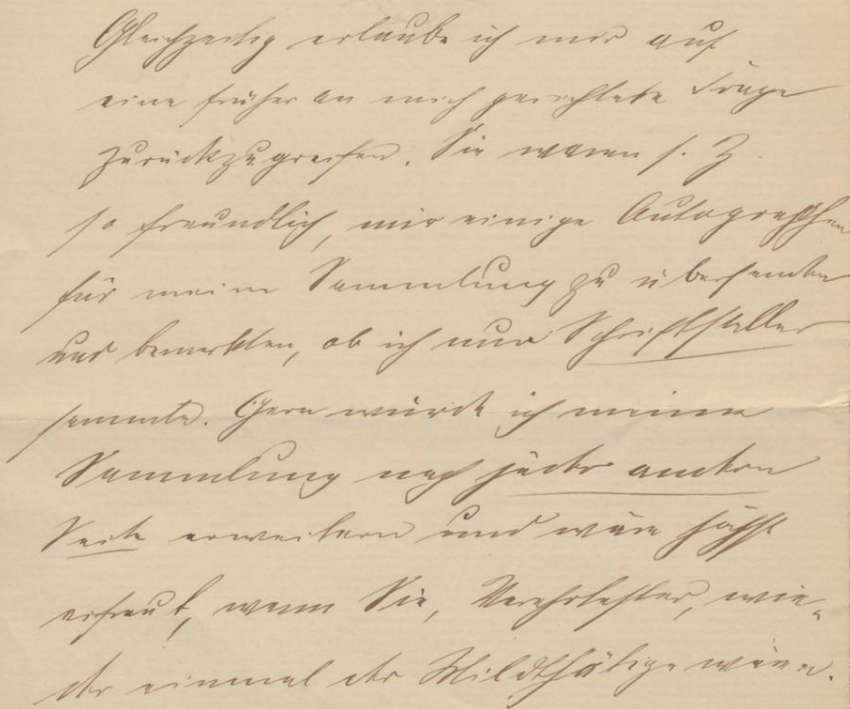 Gleichzeitig erlaube ich mir auf
eine früher an mich gerichtete Frage
zurückzugreifen. Sie waren s. Z.
so freundlich, mir einige Autographen
für meine Sammlung zu übersenden
und bemerkten, ob ich nur Schriftsteller
sammle. Gern würde ich meine
Sammlung nach jeder andern
Seite erweitern und wäre höchst
erfreut, wenn Sie, Verehrtester, wie-
der einmal der Mildthätige wären.